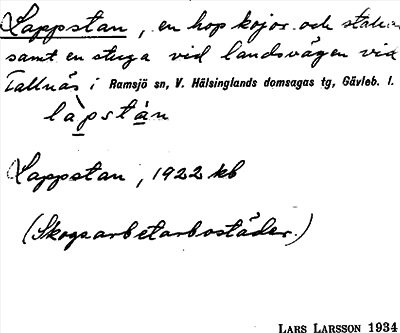 Lappstan, en hop kojor och stallar
samt en stuga vid landsvägen vid
Tallnäs i Ramsjö sn, V. Hälsinglands domsagas tg, Gävleb. l.
làpstán
Lappstan, 1922 kb
(Skogsarbetarbostäder.)
LARS LARSSON 1934